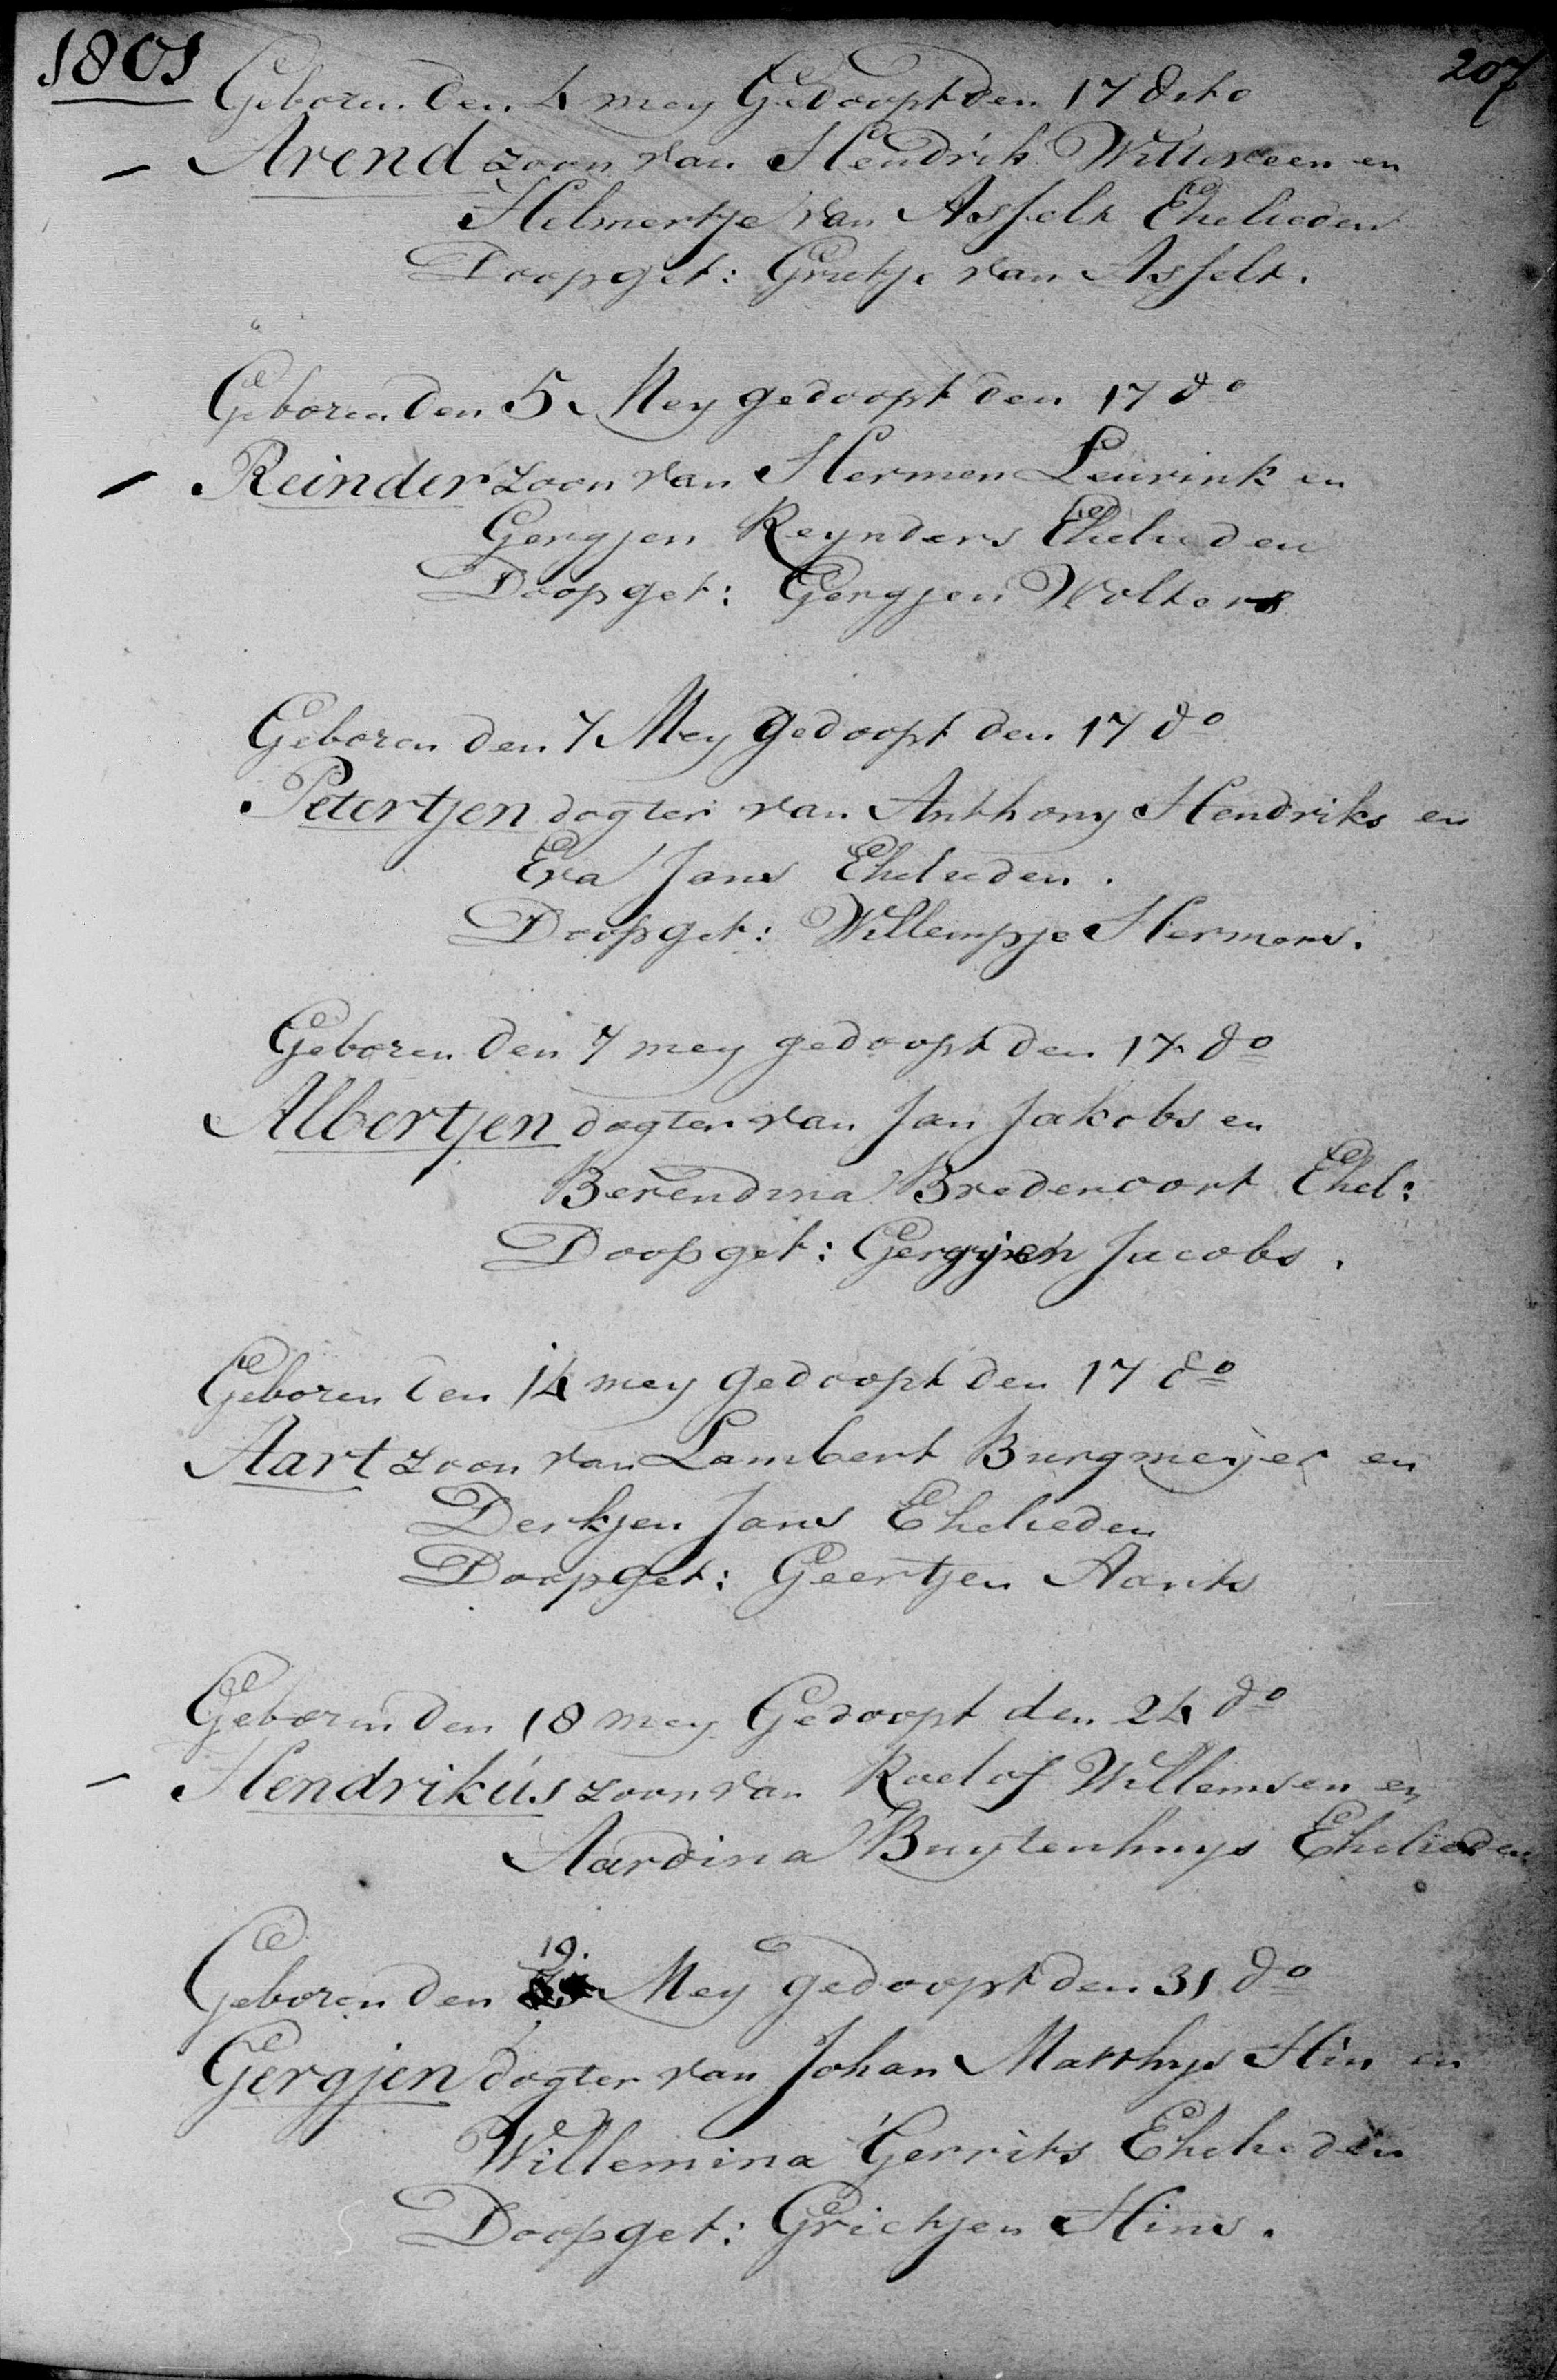 1801
207
Geboren den 4 mey Gedoopt den 17 dito
Arend zoon van Hendrik Witteveen en
Helmertje van Asselt Ehelieden
Doopget: Grietje van Asselt.
Geboren den 5 Mey gedoopt den 17 do
Reinder zoon van Hermen Leurink en
Gergjen Reynders Ehelieden
Doopget: Gergjen Wolters
Geboren den 7 Mey gedoopt den 17 do
Petertjen dogter van Anthony Hendriks en
Eva Jans Ehelieden.
Doopget: Willempje Hermens.
Geboren den 7 mey gedoopt den 17 do
Albertjen dogter van Jan Jakobs en
Berendina Bredenoort Ehel:
Doopget: Gergjen Jacobs.
Geboren den 14 mey gedoopt den 17 do
Aart zoon van Lambert Burgmeyer en
Derkjen Jans Ehelieden
Doopget: Geertjen Aarts
Geboren den 18 mey Gedoopt den 24 do
Hendrikús zoon van Roelof Willemsen en
Aardina Buytenhuys Ehelieden
Geboren den 19. Mey gedoopt den 31 do
Gergjen dogter van Johan Matthys Hin en
Willemina Gerrits Ehelieden
Doopget: Grietjen Hins.